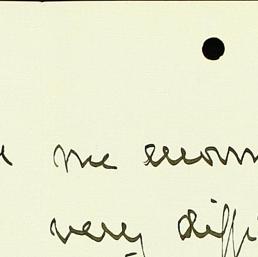 me enorm
very diffi